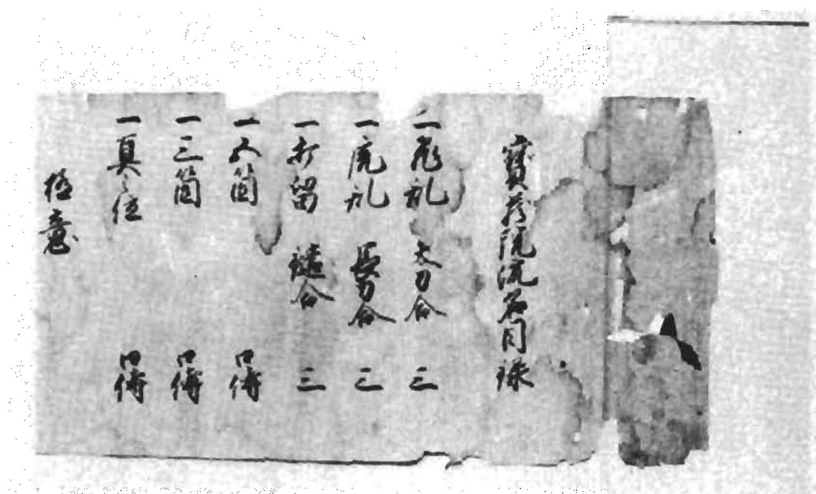 寶蔵院流名目録
一飛乱 太刀合 三
一虎乱 長刀合 三
一打留 鑓合 三
一五箇 口傳
一三箇 口傳
一真之位 口傳
極意